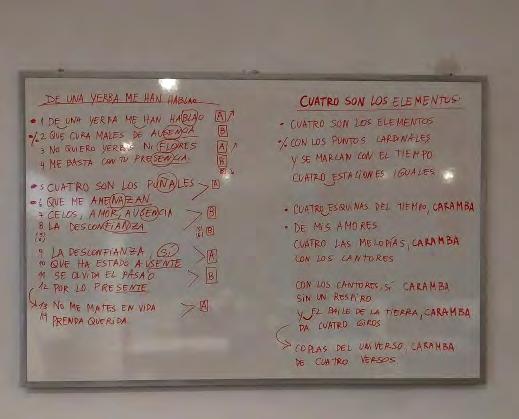 DE UNA YERBA ME HAN HABLAO
1 DE UNA YERBA ME HAN HABLAO A
2 QUE CURA MALES DE AUSENCIA B
3 NO QUIERO YERBAS NI FLORES A
4 ME BASTA CON TU PRESENCIA. B
5 CUATRO SON LOS PUÑALES A
6 QUE ME AMENAZAN
7 CELOS, AMOR, AUSENCIA B
8 LA DESCONFIANZA
9 LA DESCONFIANZA, SÍ A
10 QUE HA ESTADO AUSENTE
11 SE OLVIDA EL PASAO B
12 POR LO PRESENTE
13 NO ME MATES EN VIDA A
14 PRENDA QUERIDA
CUATRO SON LOS ELEMENTOS
CUATRO SON LOS ELEMENTOS
CON LOS PUNTOS CARDINALES
Y SE MARCAN CON EL TIEMPO
CUATRO ESTACIONES IGUALES
CUATRO ESQUINAS DEL TIEMPO, CARAMBA
DE MIS AMORES
CUATRO LAS MELODÍAS, CARAMBA
CON LOS CANTORES
CON LOS CANTORES, SÍ CARAMBA
SIN UN RESPIRO
Y EL BAILE DE LA TIERRA, CARAMBA
DA CUATRO GIROS
COPLAS DEL UNIVERSO, CARAMBA
DE CUATRO VERSOS